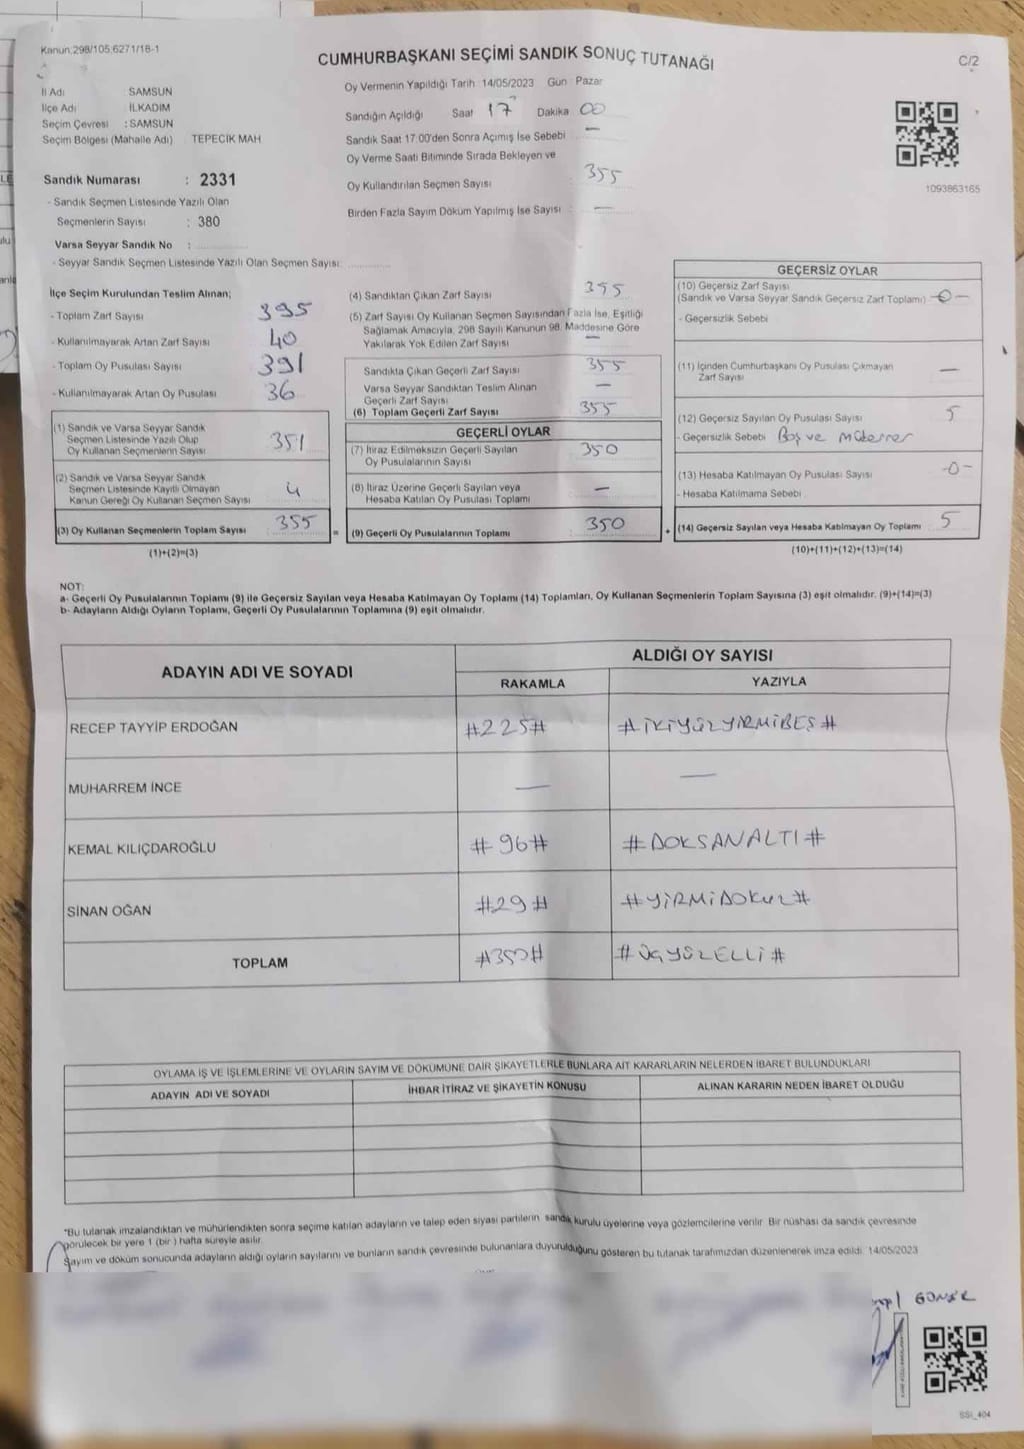 Kanun:298/105;6271/18-1
CUMHURBAŞKANI SEÇİMİ SANDIK SONUÇ TUTANAĞI
C/2
İl Adı SAMSUN
İlçe Adı İLKADIM
Seçim Çevresi : SAMSUN
Seçim Bölgesi (Mahalle Adı) TEPECİK MAH
Sandık Numarası : 2331
- Sandık Seçmen Listesinde Yazılı Olan
Seçmenlerin Sayısı : 380
Varsa Seyyar Sandık No :
- Seyyar Sandık Seçmen Listesinde Yazılı Olan Seçmen Sayısı:
Oy Vermenin Yapıldığı Tarih 14/05/2023 Gün Pazar
Sandığın Açıldığı Saat 17 Dakika 00
Sandık Saat 17:00'den Sonra Açımış İse Sebebi —
Oy Verme Saati Bitiminde Sırada Bekleyen ve
Oy Kullandırılan Seçmen Sayısı 355
Birden Fazla Sayım Döküm Yapılmış İse Sayısı : —
1093863165
İlçe Seçim Kurulundan Teslim Alınan;
- Toplam Zarf Sayısı 395
- Kullanılmayarak Artan Zarf Sayısı 40
- Toplam Oy Pusulası Sayısı 391
- Kullanılmayarak Artan Oy Pusulası 36
(1) Sandık ve Varsa Seyyar Sandık
Seçmen Listesinde Yazılı Olup
Oy Kullanan Seçmenlerin Sayısı 351
(2) Sandık ve Varsa Seyyar Sandık
Seçmen Listesinde Kayıtlı Olmayan
Kanun Gereği Oy Kullanan Seçmen Sayısı 4
(3) Oy Kullanan Seçmenlerin Toplam Sayısı 355 =
(1)+(2)=(3)
(4) Sandıktan Çıkan Zarf Sayısı 355
(5) Zarf Sayısı Oy Kullanan Seçmen Sayısından Fazla İse, Eşitliği
Sağlamak Amacıyla, 298 Sayılı Kanunun 98. Maddesine Göre
Yakılarak Yok Edilen Zarf Sayısı —
Sandıkta Çıkan Geçerli Zarf Sayısı 355
Varsa Seyyar Sandıktan Teslim Alınan
Geçerli Zarf Sayısı —
(6) Toplam Geçerli Zarf Sayısı 355
GEÇERLİ OYLAR
(7) İtiraz Edilmeksizin Geçerli Sayılan
Oy Pusulalarının Sayısı 350
(8) İtiraz Üzerine Geçerli Sayılan veya
Hesaba Katılan Oy Pusulası Toplamı —
(9) Geçerli Oy Pusulalarının Toplamı 350 +
GEÇERSİZ OYLAR
(10) Geçersiz Zarf Sayısı
(Sandık ve Varsa Seyyar Sandık Geçersiz Zarf Toplamı) -0-
- Geçersizlik Sebebi
(11) İçinden Cumhurbaşkanı Oy Pusulası Çıkmayan
Zarf Sayısı —
(12) Geçersiz Sayılan Oy Pusulası Sayısı 5
- Geçersizlik Sebebi Boş ve
(13) Hesaba Katılmayan Oy Pusulası Sayısı -0-
- Hesaba Katılmama Sebebi
(14) Geçersiz Sayılan veya Hesaba Katılmayan Oy Toplamı 5
(10)+(11)+(12)+(13)=(14)
NOT:
a- Geçerli Oy Pusulalarının Toplamı (9) ile Geçersiz Sayılan veya Hesaba Katılmayan Oy Toplamı (14) Toplamları, Oy Kullanan Seçmenlerin Toplam Sayısına (3) eşit olmalıdır. (9)+(14)=(3)
b- Adayların Aldığı Oyların Toplamı, Geçerli Oy Pusulalarının Toplamına (9) eşit olmalıdır.
ADAYIN ADI VE SOYADI
ALDIĞI OY SAYISI
RAKAMLA YAZIYLA
RECEP TAYYİP ERDOĞAN #225# #İKİYÜZYİRMİBEŞ#
MUHARREM İNCE — —
KEMAL KILIÇDAROĞLU #96# #DOKSANALTI#
SİNAN OĞAN #29# #YİRMİDOKUZ#
TOPLAM #350# #ÜÇYÜZELLİ#
OYLAMA İŞ VE İŞLEMLERİNE VE OYLARIN SAYIM VE DÖKÜMÜNE DAİR ŞİKAYETLERLE BUNLARA AİT KARARLARIN NELERDEN İBARET BULUNDUKLARI
ADAYIN ADI VE SOYADI İHBAR İTİRAZ VE ŞİKAYETİN KONUSU ALINAN KARARIN NEDEN İBARET OLDUĞU
*Bu tutanak imzalandıktan ve mühürlendikten sonra seçime katılan adayların ve talep eden siyasi partilerin sandık kurulu üyelerine veya gözlemcilerine verilir. Bir nüshası da sandık çevresinde
görülecek bir yere 1 (bir) hafta süreyle asılır.
Sayım ve döküm sonucunda adayların aldığı oyların sayılarını ve bunların sandık çevresinde bulunanlara duyurulduğunu gösteren bu tutanak tarafımızdan düzenlenerek imza edildi. 14/05/2023
SSI_404